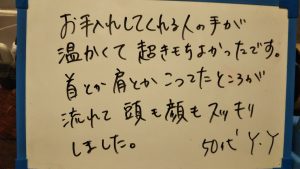 お手入れしてくれる人の手が
温かくて超きもちよかったです。
首とか肩とかこってたところが
流れて頭も顔もスッキリ
しました。
50代 Y.Y